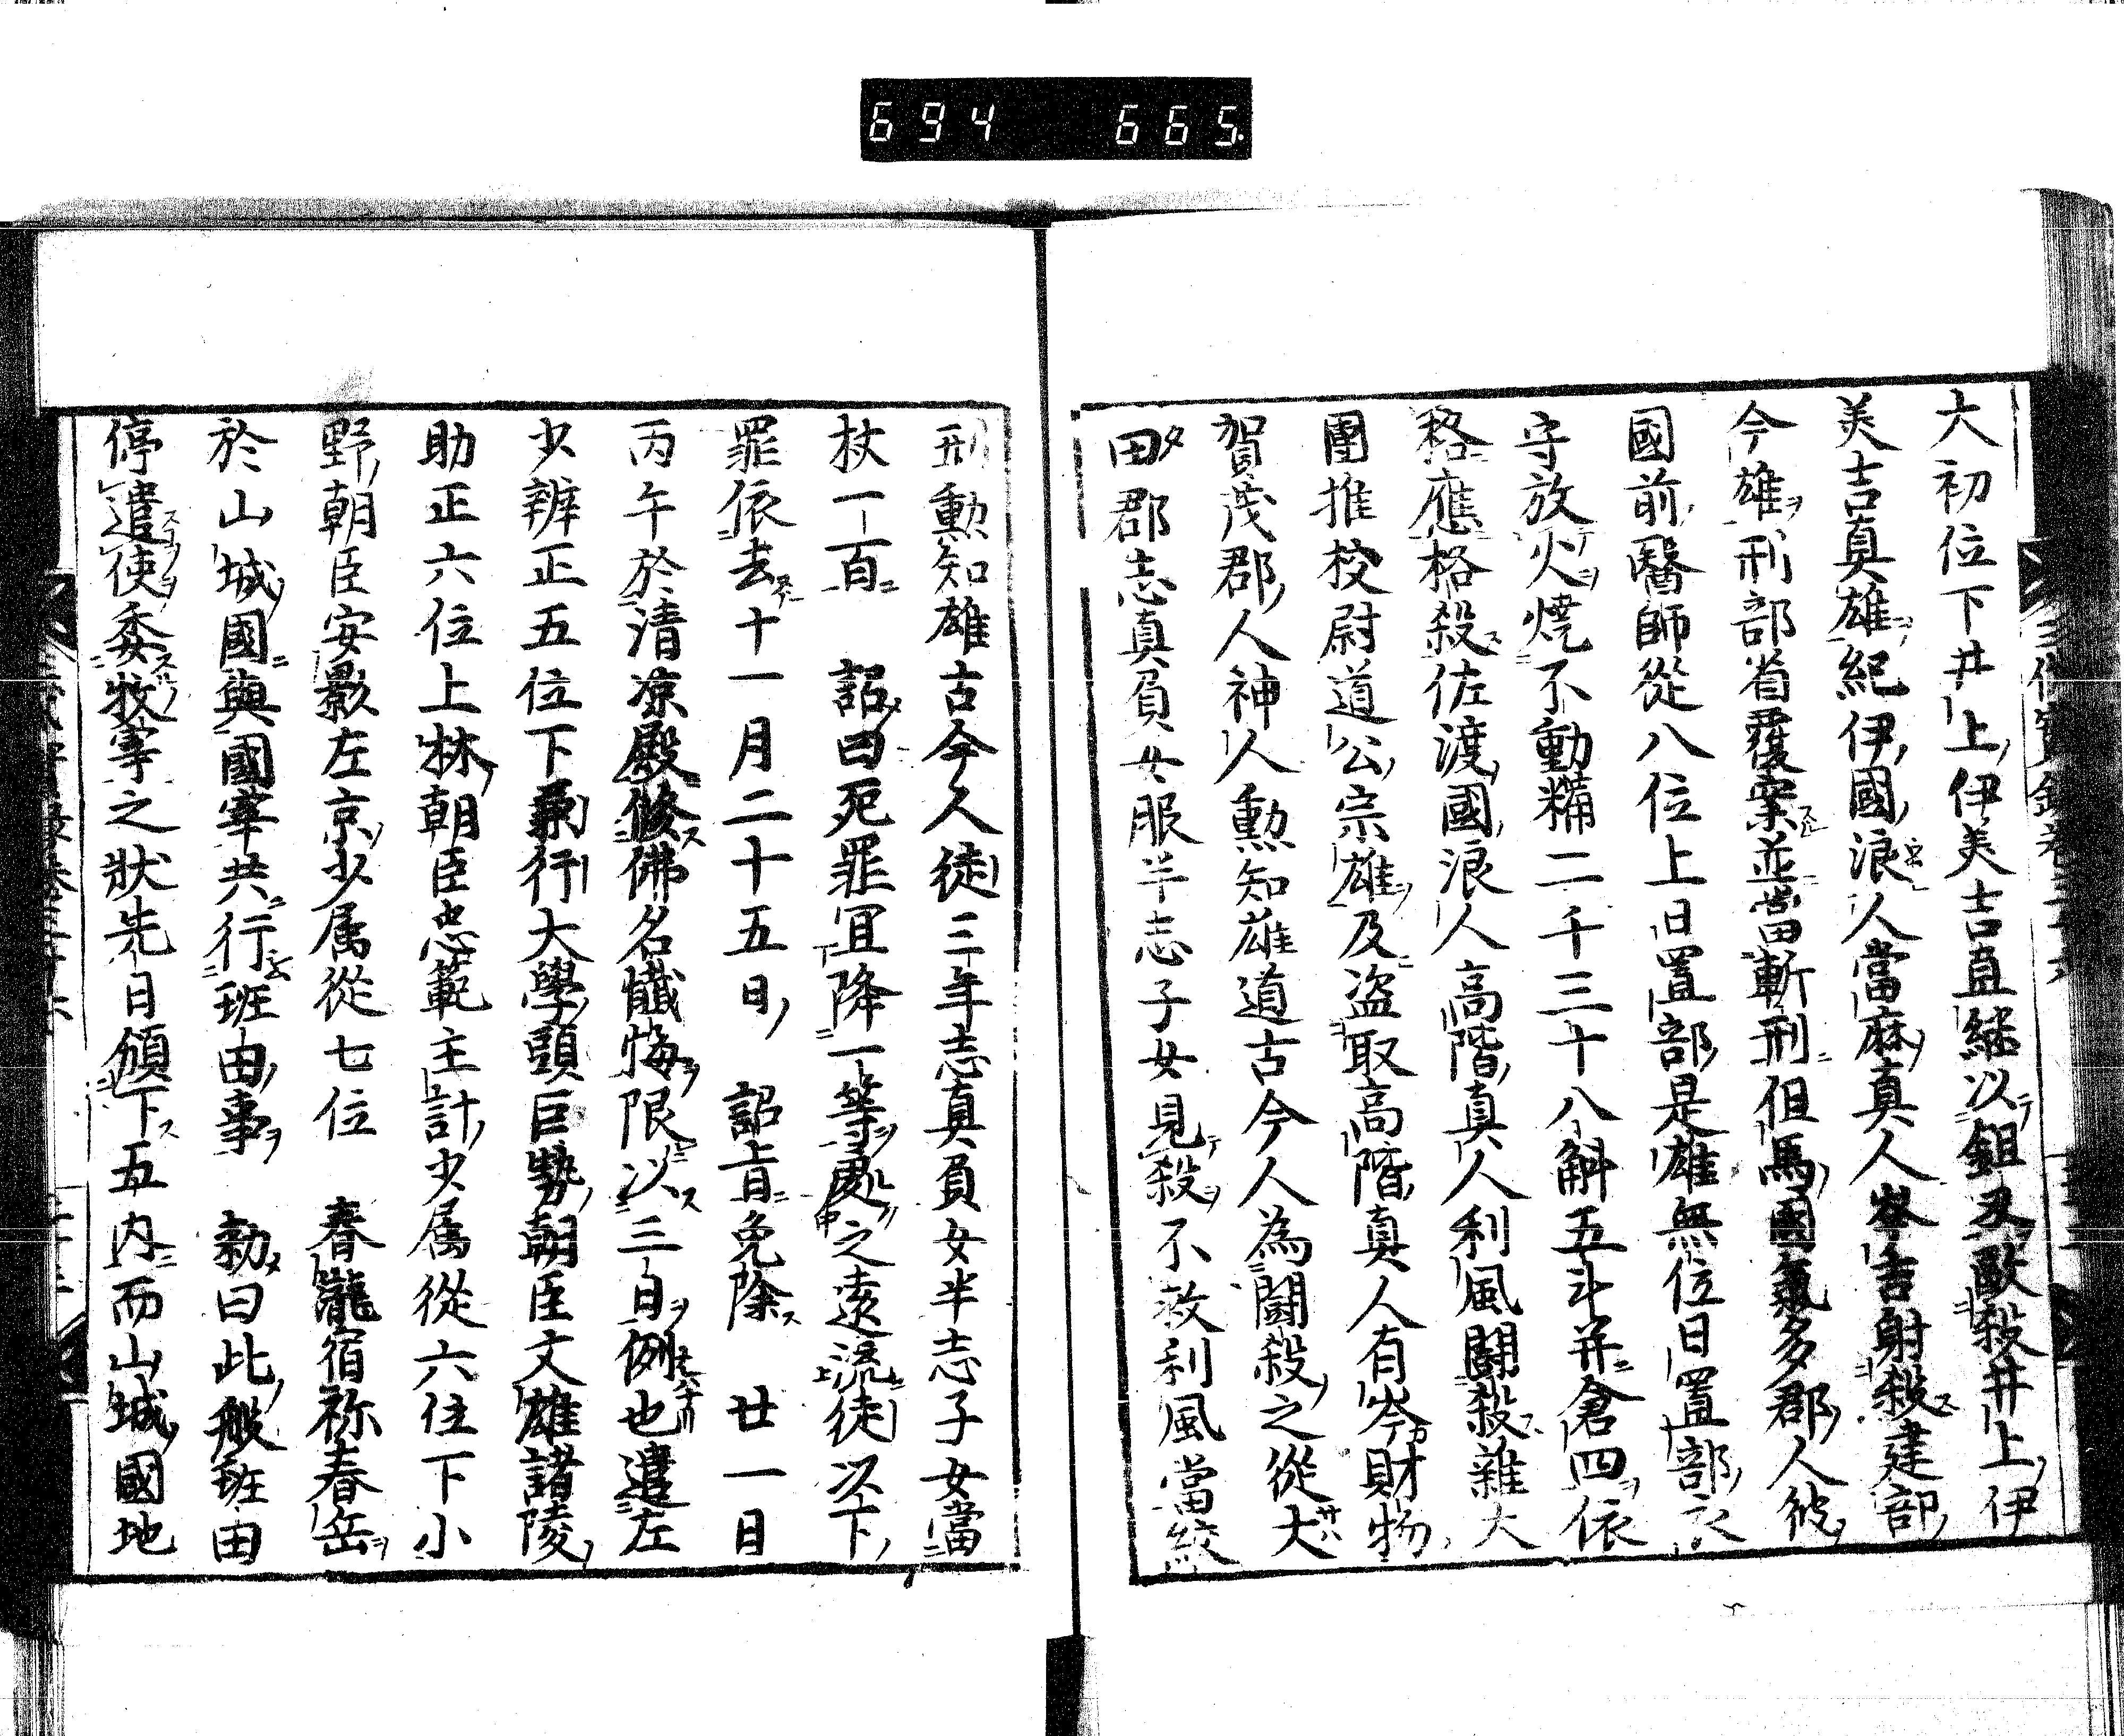 694 665
大初位下井上伊美吉直継以鉏刄毆殺井上伊
美吉真雄紀伊國浪人當麻真人岑吉射殺建部
今雄刑部省覆案並當斬刑但馬國氣多郡人従
國前醫師從八位上日置部是雄無位日置部衣
守放火燒不動糒二千三十八斛五斗并倉四依
格應格殺佐渡國浪人高階真人利風鬪殺雜太
團推校尉道公宗雄及盗取高階真人有岑財物
賀茂郡人神人勲知雄道古今人為鬪殺之從大
田郡志真負女服半志子女見殺不救利風當絞
刑勲知雄古今人徒三年志真負女半志子女當
杖一百 詔曰死罪冝降一等處之遠流徒以下
罪依去十一月二十五日 詔旨免除 廿一日
丙午於清凉殿修佛名懺悔限以三日例也遣左
少辨正五位下兼行大學頭巨勢朝臣文雄諸陵
助正六位上林朝臣忠範主計少属從六位下小
野朝臣安影左京少属從七位 春瀧宿祢春岳
於山城國與國宰共行班由事 勅曰此般班由
停遣使委牧宰之狀先日頒下五内而山城國地